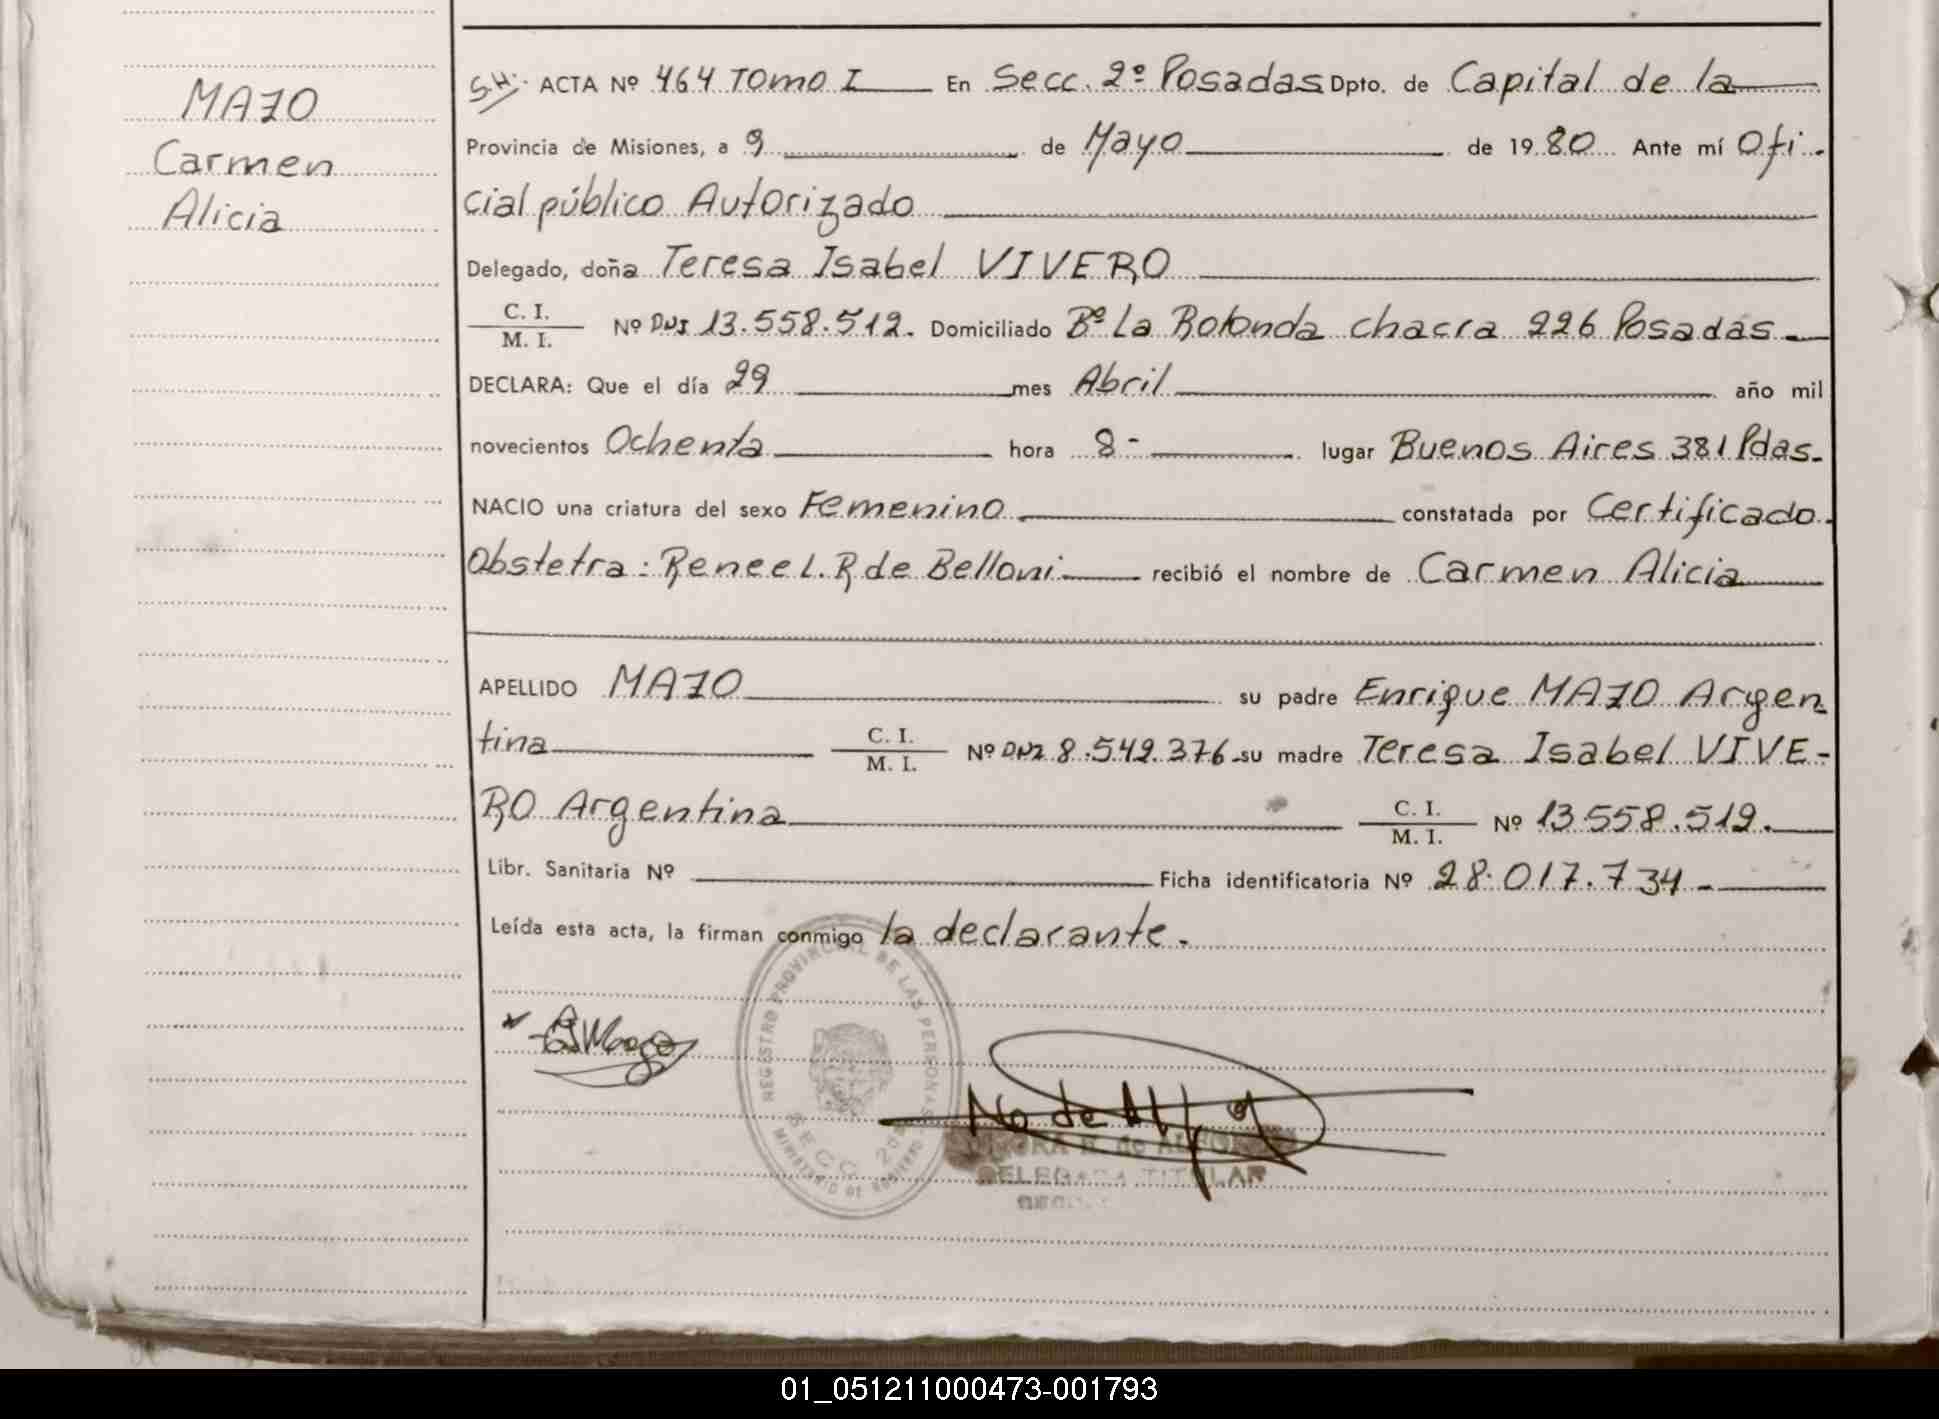 MAZO
Carmen
Alicia
S.H. ACTA Nº 464 Tomo I En Secc. 2º Posadas Dpto. de Capital de la
Provincia de Misiones, a 9 de Mayo de 1980 Ante mí Ofi
cial público Autorizado
Delegado, doña Teresa Isabel VIVERO
C. I.
M. I. Nº DNI 13.558.512. Domiciliado Bº La Rotonda chacra 226 Posadas
DECLARA: Que el día 29 mes Abril año mil
novecientos Ochenta hora 8- lugar Buenos Aires 381 Pdas.
NACIO una criatura del sexo Femenino constatada por Certificado
Obstetra: Renee L. R de Belloni recibió el nombre de Carmen Alicia
APELLIDO MAZO su padre Enrique MAZO Argen
tina C. I.
M. I. Nº DNI 8.542.376 su madre Teresa Isabel VIVE-
RO Argentina C. I.
M. I. Nº 13.558.512.
Libr. Sanitaria Nº Ficha identificatoria Nº 28.017.734
Leída esta acta, la firman conmigo la declarante.
REGISTRO PROVINCIAL DE LAS PERSONAS
SECC. 2da
MINISTERIO DE GOBIERNO
DELEGADA TITULAR
01_051211000473-001793